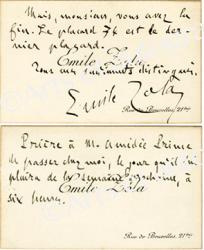 Mais, monsieur, vous avez la
fin. Le placard 74 est le der-
nier placard.
Emile Zola
Tous mes sentiments distingués.
Emile Zola
Rue de Bruxelles, 21bis
Prière à Mr Amédée Prince
de passer chez moi, le jour qu'il lui
plaira de la semaine prochaine, à
Emile Zola
six heures.
Rue de Bruxelles, 21bis